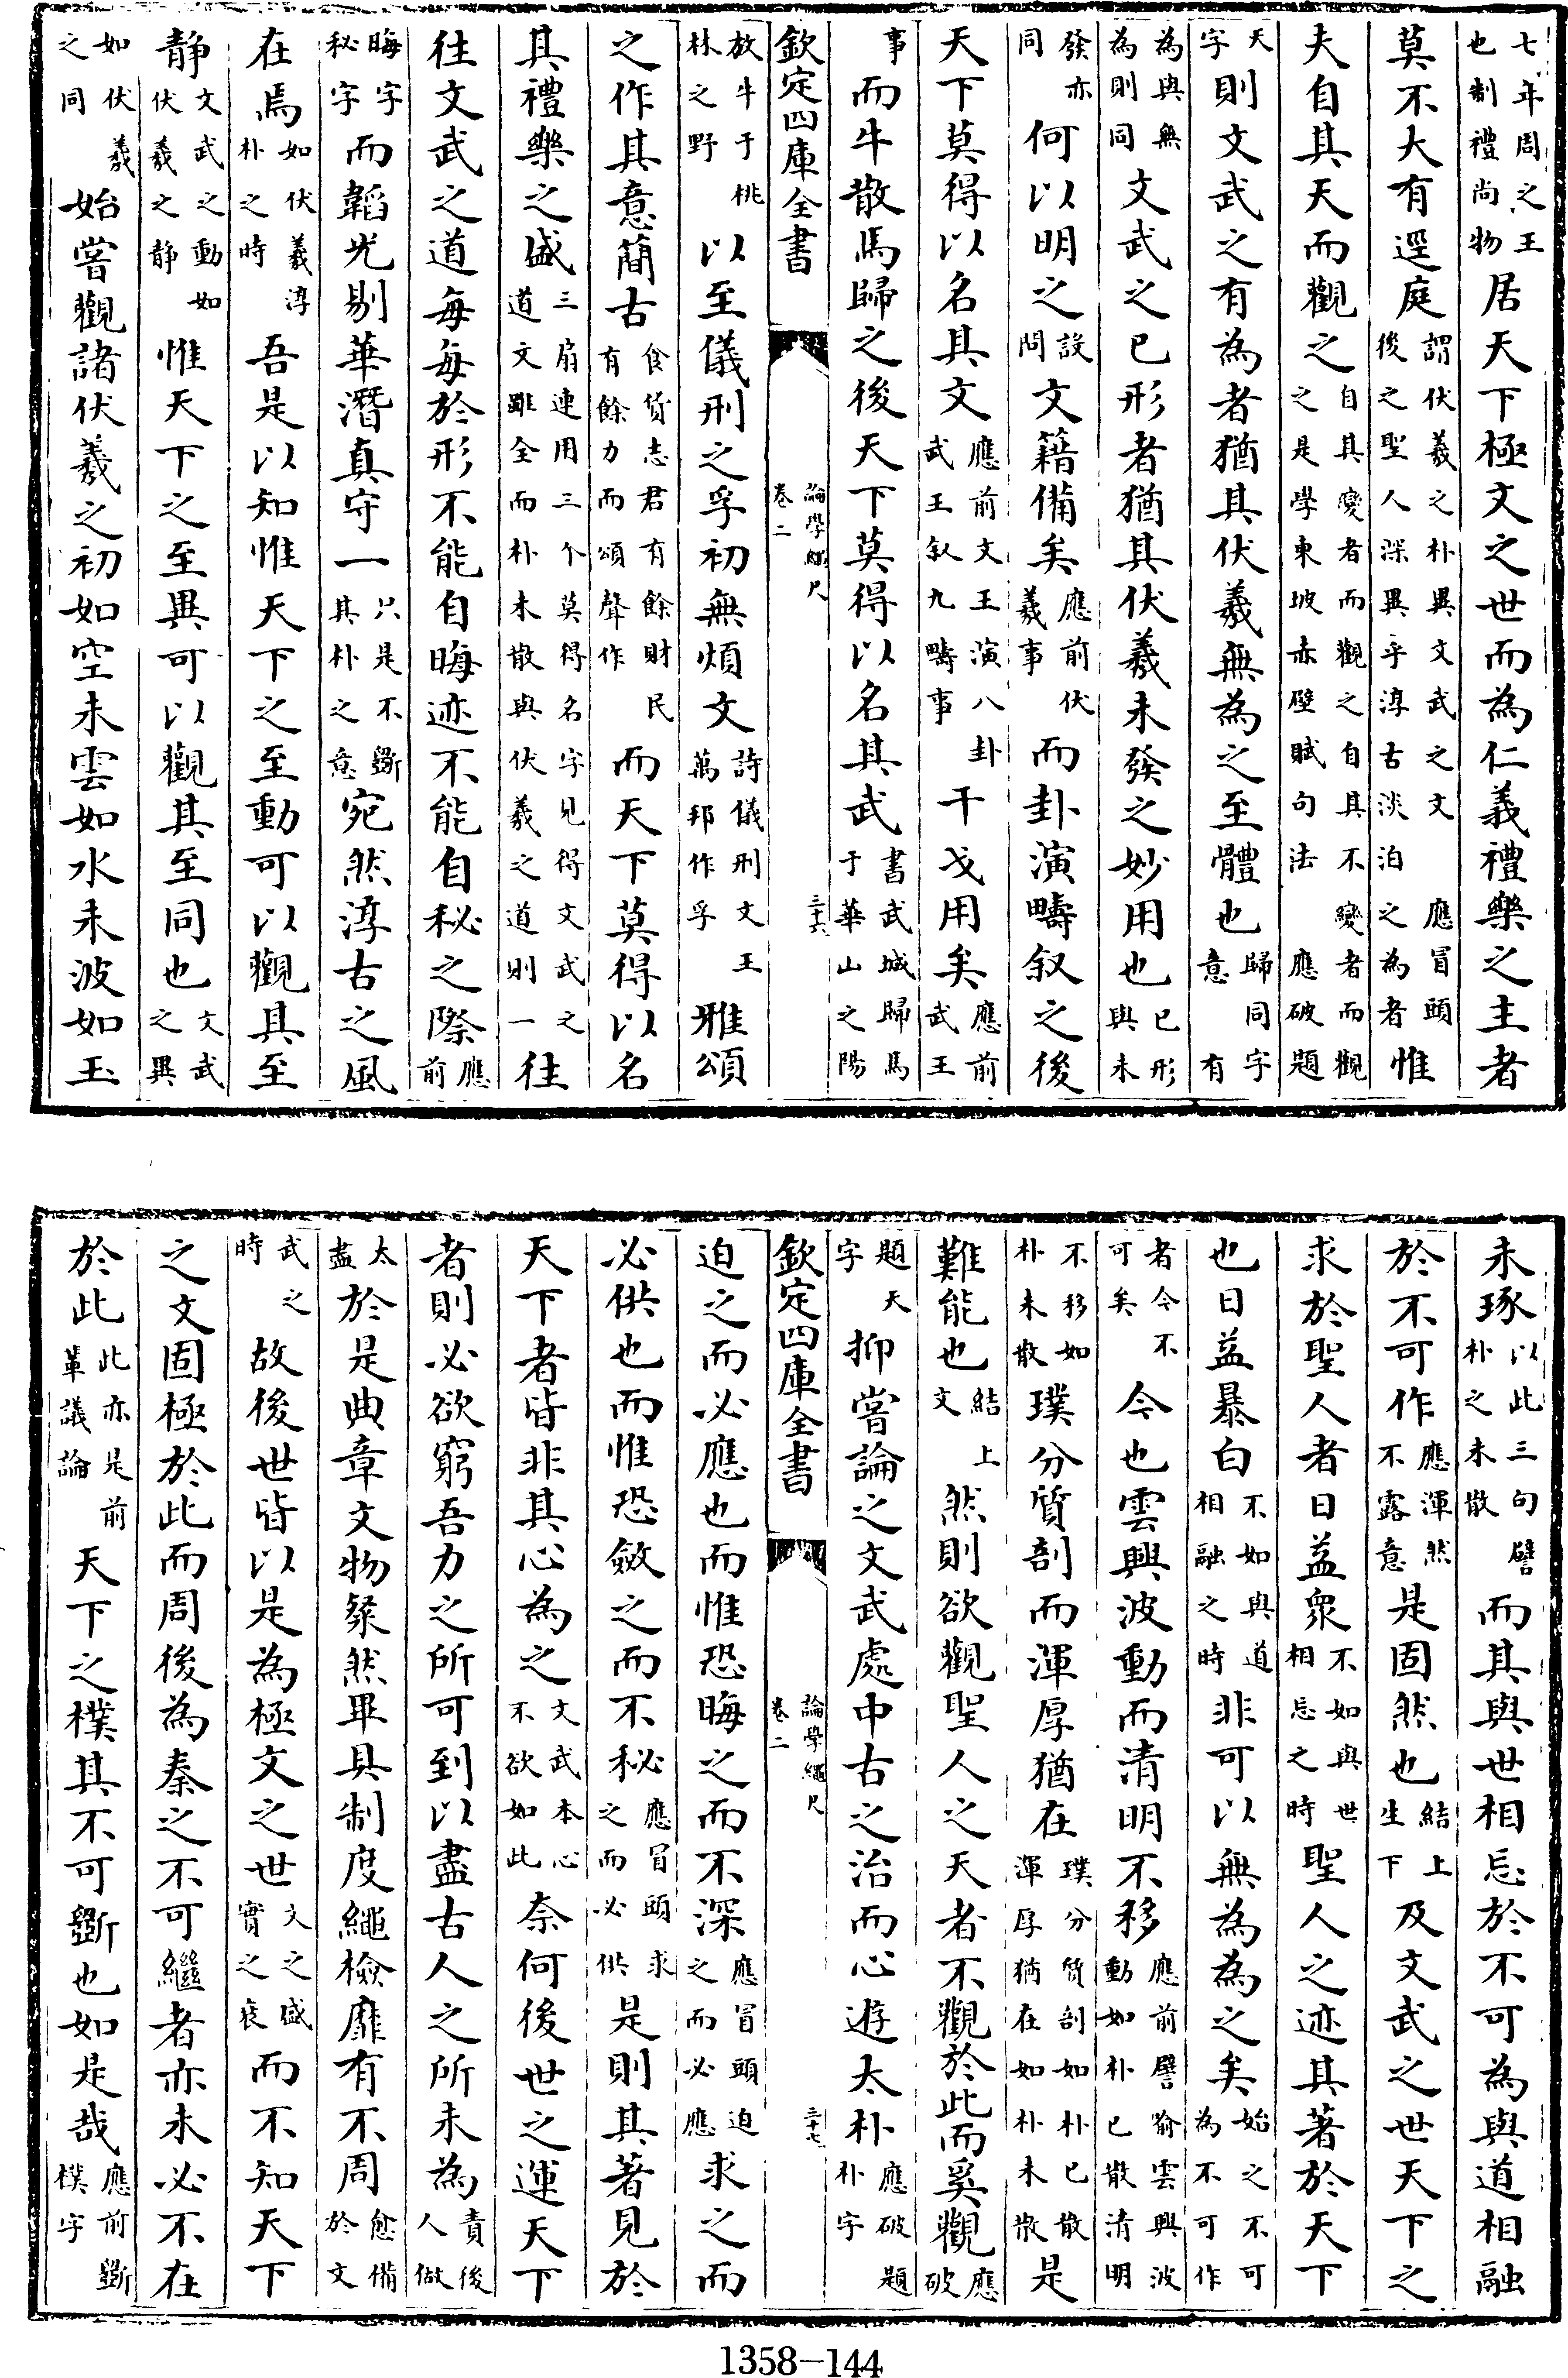 七年周之王也制禮尚物居天下極文之世而為仁義禮樂之主者
莫不大有逕庭謂伏羲之朴異文武之文後之聖人深異乎淳古淡泊應冒頭之為者惟
夫自其天而觀之自其變者而觀之自其不變者而觀之是學東坡赤壁賦句法應破題
天字則文武之有為者猶其伏羲無為之至體也歸同字有意
為與無為則同文武之已形者猶其伏羲未發之妙用也已形與未
發亦同何以明之設問文籍備矣應前伏羲事而卦演疇叙之後
天下莫得以名其文應前文王演八卦武王叙九疇事干戈用矣應前武王
事而牛散馬歸之後天下莫得以名其武書武城歸馬于華山之陽
欽定四庫全書 論學繩尺 卷二 三十六
放牛于桃林之野以至儀刑之孚初無煩文詩儀刑文王萬邦作孚雅頌
之作其意簡古食貨志君有餘財民有餘力而頌聲作而天下莫得以名
其禮樂之盛三扇連用三个莫得名字見得文武之道文雖全而朴未散與伏羲之道則一往
往文武之道每每於形不能自晦迹不能自秘之際應前
晦字秘字而韜光剔華潛真守一只是不斷其朴之意宛然淳古之風
在焉如伏羲淳朴之時吾是以知惟天下之至動可以觀其至
靜文武之動如伏羲之静惟天下之至異可以觀其至同也文武之異
如伏羲之同始嘗觀諸伏羲之初如空未雲如水未波如玉
未琢以此三句譬朴之未散而其與世相忘於不可為與道相融
於不可作應渾然不露意是固然也結上生下及文武之世天下之
求於聖人者日益衆不如與世相忘之時聖人之迹其著於天下
也日益暴白不如與道相融之時非可以無為為之矣始之不可為不可作
者今不可矣今也雲興波動而清明不移應前譬喻雲興波動如朴已散清明
不移如朴未散璞分質剖而渾厚猶在璞分質剖如朴已散渾厚猶在如朴未散是
難能也結上文然則欲觀聖人之天者不觀於此而奚觀應破
題天字抑嘗論之文武處中古之治而心遊太朴應破題朴字
欽定四庫全書 論學繩尺 卷二 三十七
迫之而必應也而惟恐晦之而不深應冒頭迫之而必應求之而
必供也而惟恐斂之而不秘應冒頭求之而必供是則其著見於
天下者皆非其心為之文武本心不欲如此奈何後世之運天下
者則必欲窮吾力之所可到以盡古人之所未為責後人做
太盡於是典章文物粲然畢具制度繩檢靡有不周愈備於文
武之時故後世皆以是為極文之世文之盛實之衰而不知天下
之文固極於此而周後為秦之不可繼者亦未必不在
於此此亦是前輩議論天下之樸其不可斷也如是哉應前斷樸字
1358—144